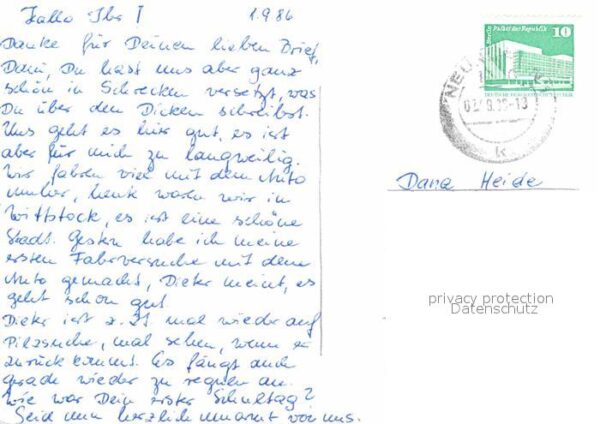 Hallo Ihr !   1.9.86
Danke für Deinen lieben Brief,
Dani, Du hast uns aber ganz
schön in Schrecken versetzt, was
Du über den Dicken schreibst.
Uns geht es hier gut, es ist
aber für mich zu langweilig.
Wir fahren viel mit dem Auto
umher, heute waren wir in
Wittstock, es ist eine schöne
Stadt. Gestern habe ich meine
ersten Fahrversuche mit dem
Auto gemacht, Dieter meint, es
geht schon gut
Dieter ist z. Zt mal wieder auf
Pilzsuche, mal sehen, wenn er
zurück kommt. Es fängt auch
gerade wieder zu regnen an.
Wie war Dein erster Schultag?
Seid nun herzlich umarmt von uns.
Berlin, Palast der Republik
10
NEU
Dana Heide
privacy protection
Datenschutz